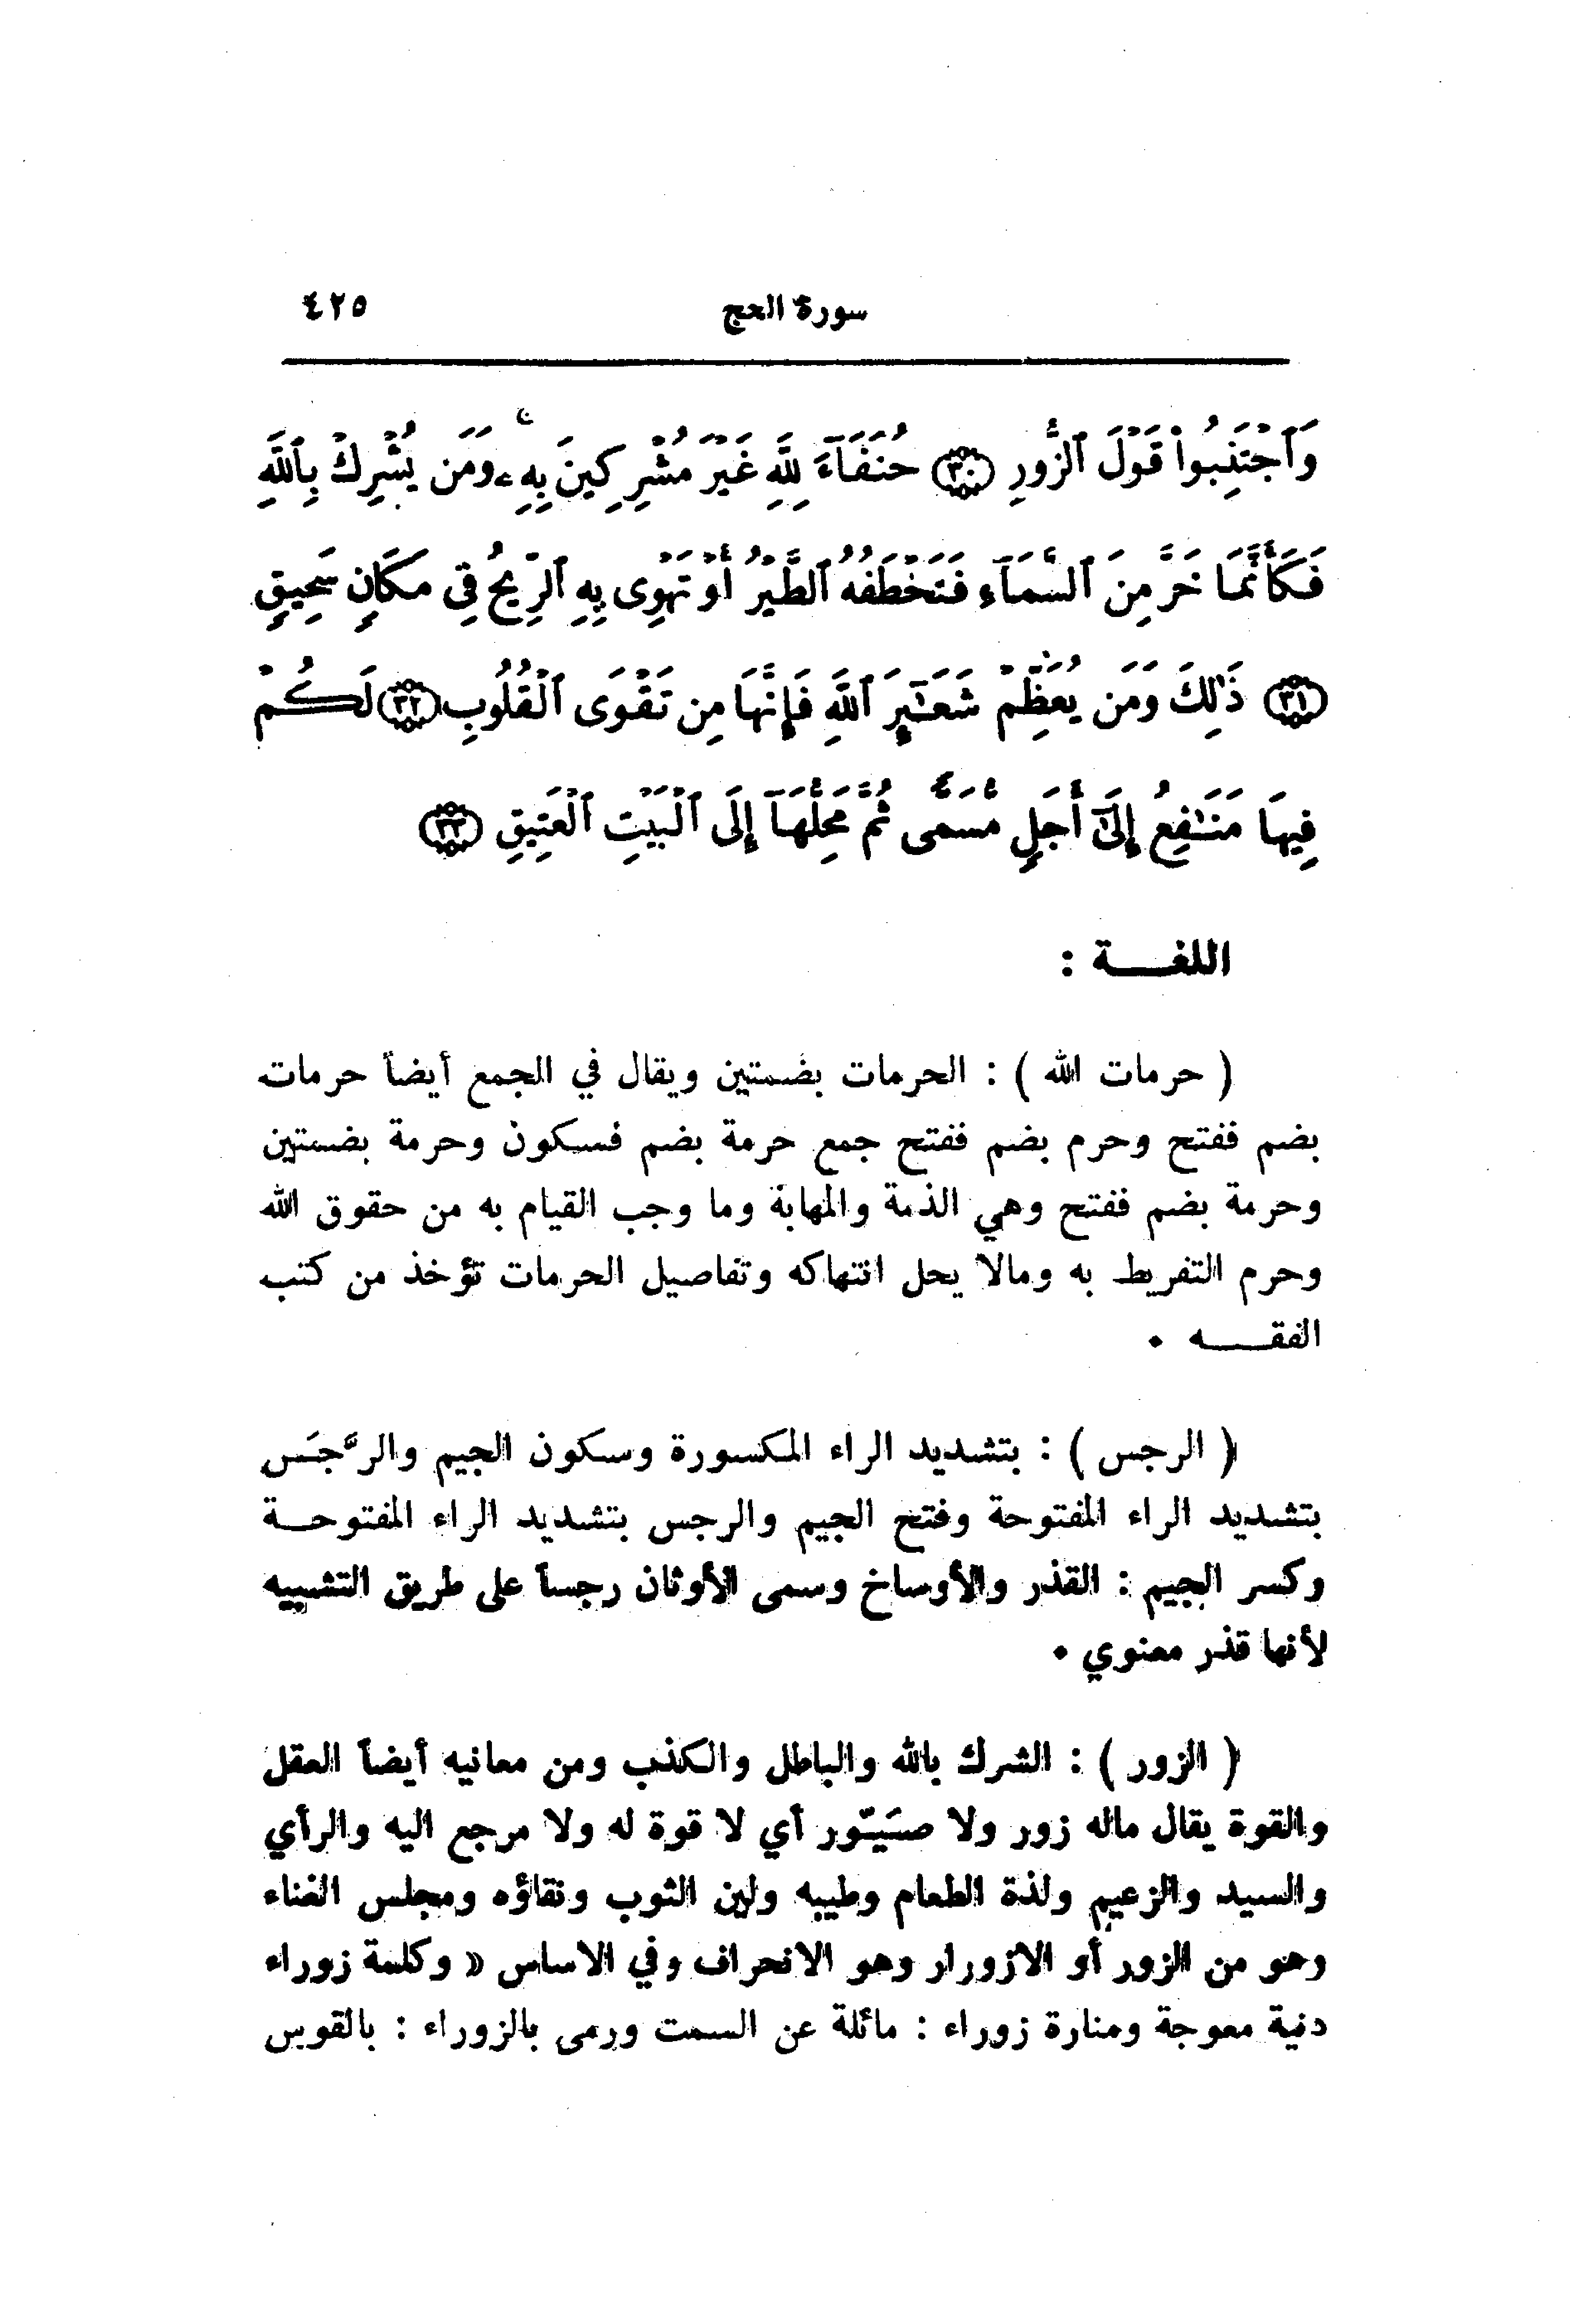 سورة الحج ٤٢٥
وَٱجْتَنِبُوا۟ قَوْلَ ٱلزُّورِ ﴿٣٠﴾ حُنَفَآءَ لِلَّهِ غَيْرَ مُشْرِكِينَ بِهِۦ ۚ وَمَن يُشْرِكْ بِٱللَّهِ
فَكَأَنَّمَا خَرَّ مِنَ ٱلسَّمَآءِ فَتَخْطَفُهُ ٱلطَّيْرُ أَوْ تَهْوِى بِهِ ٱلرِّيحُ فِى مَكَانٍ سَحِيقٍ
﴿٣١﴾ ذَٰلِكَ وَمَن يُعَظِّمْ شَعَـٰٓئِرَ ٱللَّهِ فَإِنَّهَا مِن تَقْوَى ٱلْقُلُوبِ ﴿٣٢﴾ لَكُمْ
فِيهَا مَنَـٰفِعُ إِلَىٰٓ أَجَلٍ مُّسَمًّى ثُمَّ مَحِلُّهَآ إِلَى ٱلْبَيْتِ ٱلْعَتِيقِ ﴿٣٣﴾
اللغـــة :
( حرمات الله ) : الحرمات بضمتين ويقال في الجمع أيضاً حرمات
بضم ففتح وحرم بضم ففتح جمع حرمة بضم فسكون وحرمة بضمتين
وحرمة بضم ففتح وهي الذمة والمهابة وما وجب القيام به من حقوق الله
وحرم التفريط به ومالا يحل انتهاكه وتفاصيل الحرمات تؤخذ من كتب
الفقـــه .
( الرجس ) : بتشديد الراء المكسورة وسكون الجيم والرَّجَس
بتشديد الراء المفتوحة وفتح الجيم والرجس بتشديد الراء المفتوحـة
وكسر الجيم : القذر والأوساخ وسمى الأوثان رجساً على طريق التشبيه
لأنها قذر معنوي .
( الزور ) : الشرك بالله والباطل والكذب ومن معانيه أيضاً العقل
والقوة يقال ماله زور ولا صَيّور أي لا قوة له ولا مرجع اليه والرأي
والسيد والزعيم ولذة الطعام وطيبه ولين الثوب ونقاؤه ومجلس الغناء
وهو من الزور أو الازورار وهو الانحراف وفي الاساس « وكلمة زوراء
دنية معوجة ومنارة زوراء : مائلة عن السمت ورمى بالزوراء : بالقوس